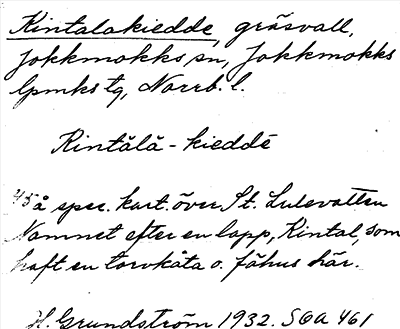 Kintalakiedde, gräsvall,
Jokkmokks sn, Jokkmokks
lpmks tg, Norrb. l.
Kintālā-kieddē
45 å spec. kart. över St. Lulevatten
Namnet efter en lapp, Kintal, som
haft en torvkåta o. fähus här.
H. Grundström 1932. SOA 461